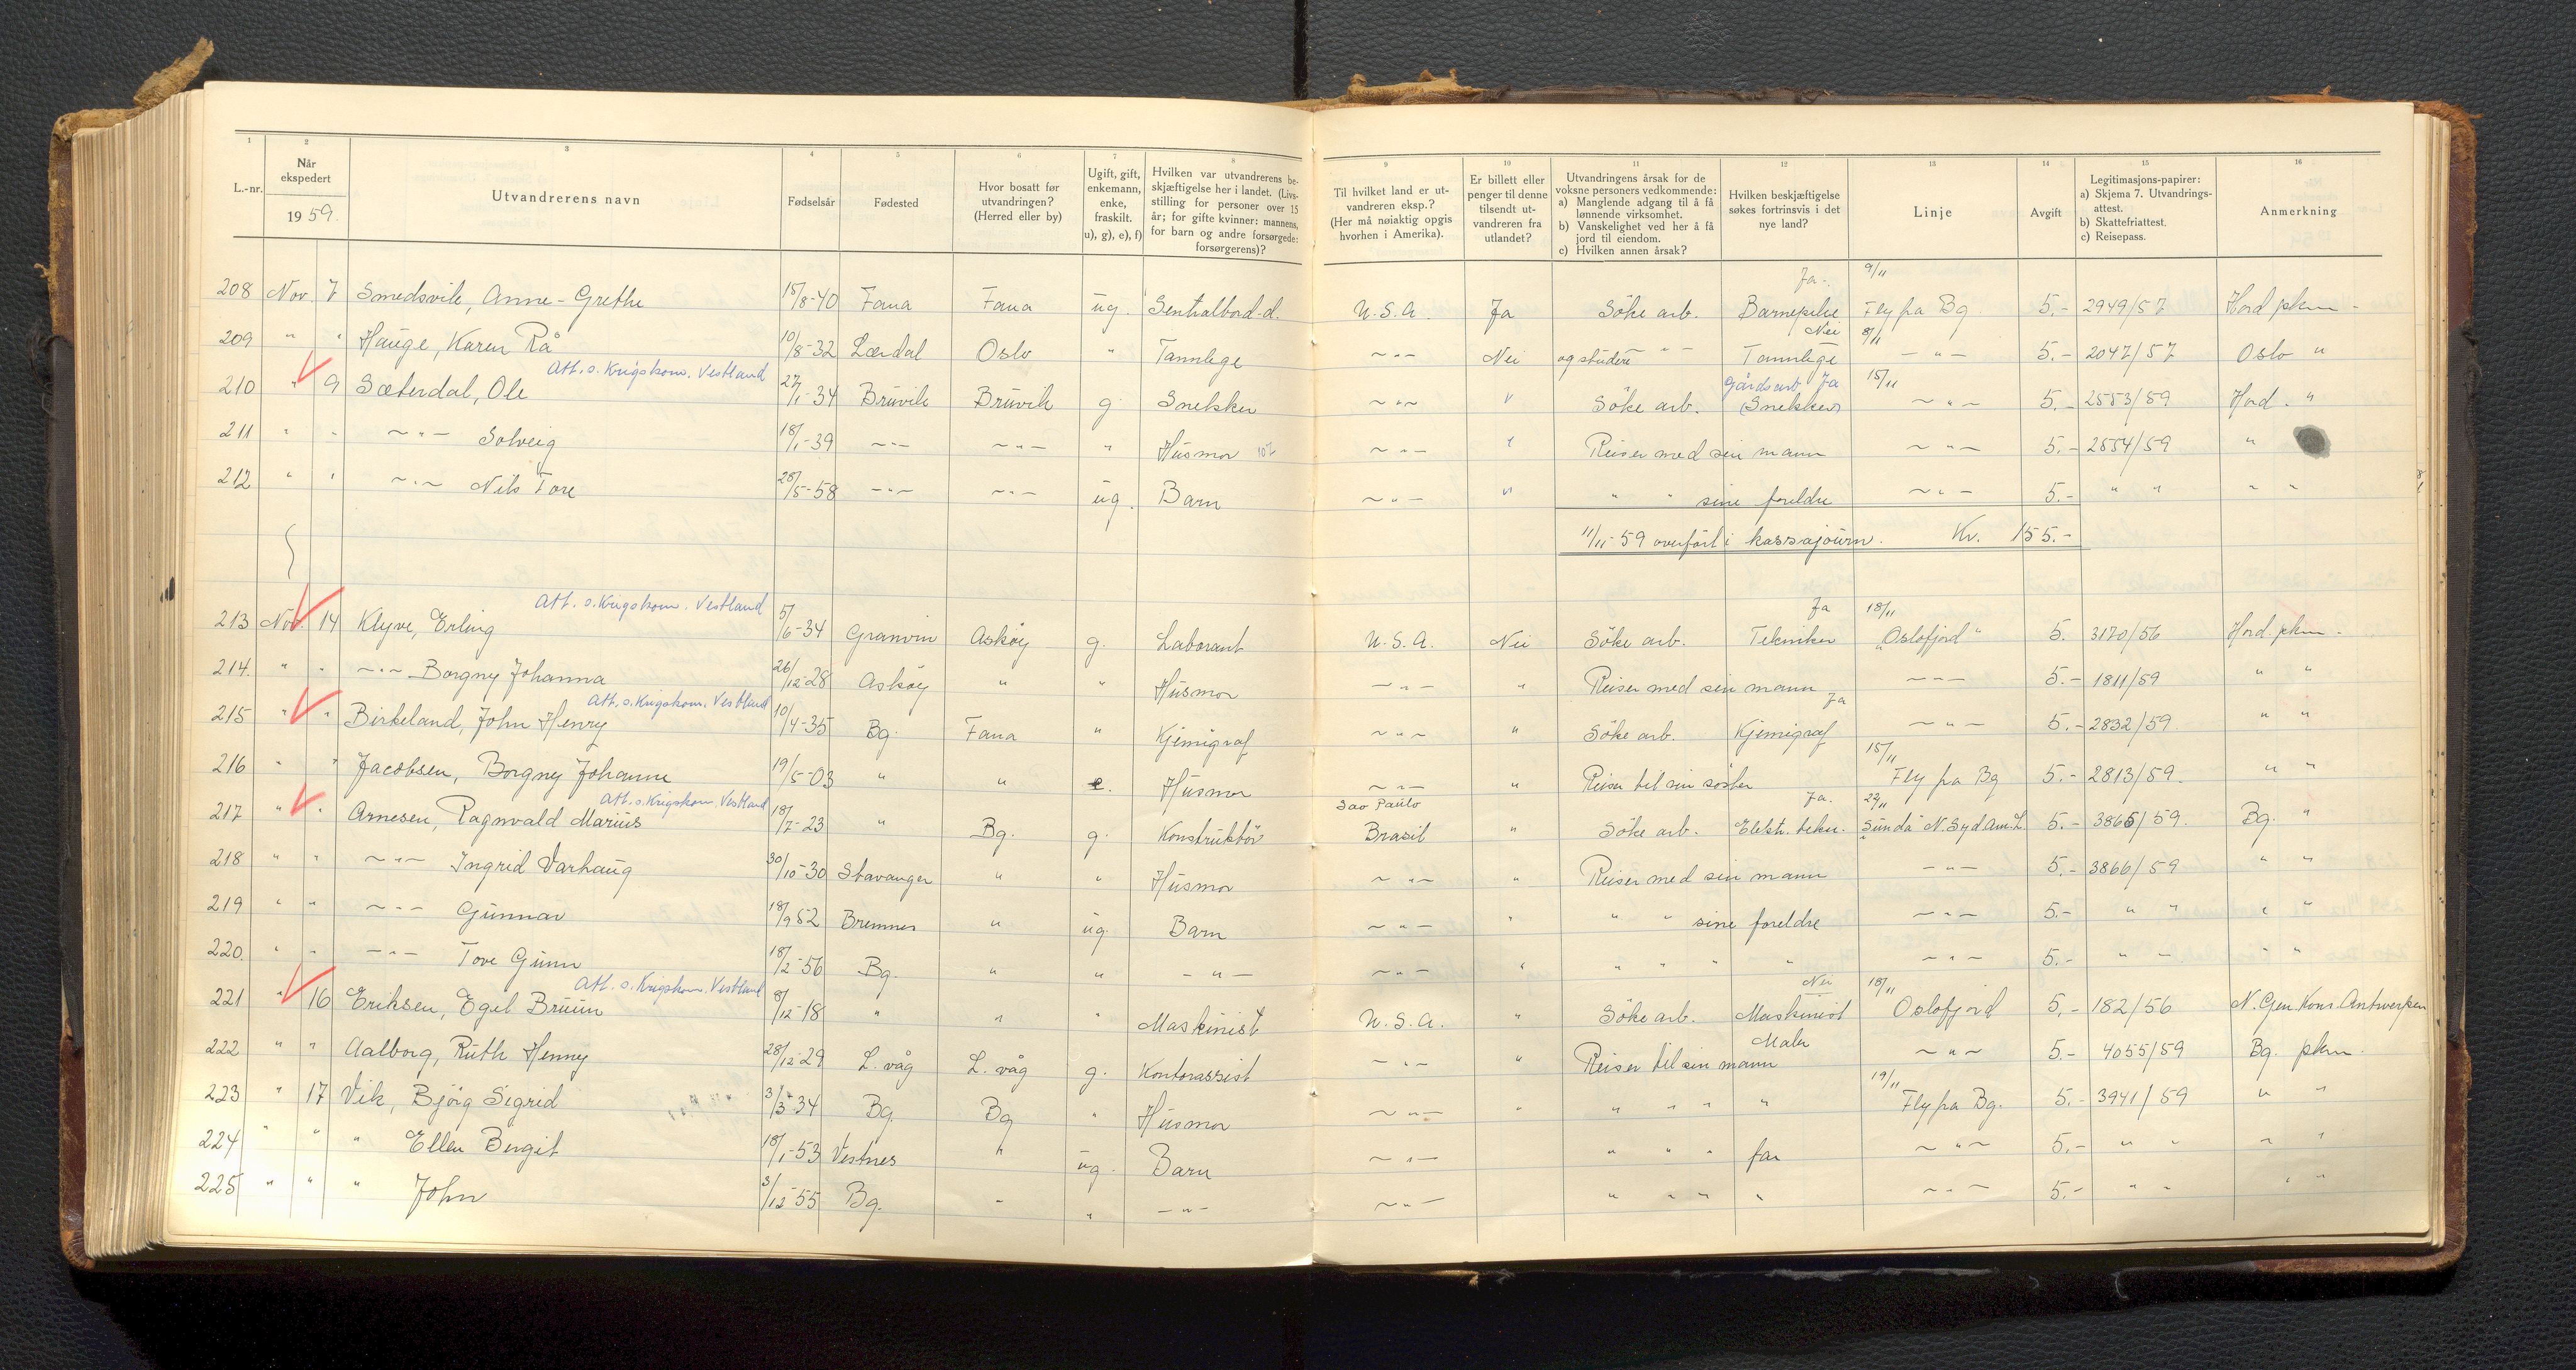 1 2 3 4 5 6 7 8 9 10 11 12 13 14 15 16
L.-nr. | Når ekspedert 1959. | Utvandrerens navn | Fødselsår | Fødested | Hvor bosatt før utvandringen? (Herred eller by) | Ugift, gift, enkemann, enke, fraskilt. u), g), e), f) | Hvilken var utvandrerens beskjæftigelse her i landet. (Livsstilling for personer over 15 år; for gifte kvinner: mannens, for barn og andre forsørgede: forsørgerens)? | Til hvilket land er utvandreren eksp.? (Her må nøiaktig opgis hvorhen i Amerika). | Er billett eller penger til denne tilsendt utvandreren fra utlandet? | Utvandringens årsak for de voksne personers vedkommende: a) Manglende adgang til å få lønnende virksomhet. b) Vanskelighet ved her å få jord til eiendom. c) Hvilken annen årsak? | Hvilken beskjæftigelse søkes fortrinsvis i det nye land? | Linje | Avgift | Legitimasjons-papirer: a) Skjema 7. Utvandringsattest. b) Skattefriattest. c) Reisepass. | Anmerkning
208 Nov. 7 Smedsvik, Anne-Grethe 15/8-40 Fana Fana ug. Sentralbord.d. U.S.A. Ja Söke arb. Ja. Barnepike 9/11 Fly fra Bg 5.- 2949/57 Hord pkm -
209 " " Hauge, Karen Rå 10/8-32 Lærdal Oslo " Tannlege ~"~ Nei og studere " Nei Tannlege 8/11 -"- 5.- 2047/57 Oslo "
Att. s. Krigskom. Vestland
210 " 9 Sæterdal, Ole 27/1-34 Bruvik Bruvik g. Snekker ~"~ " Söke arb. Gårdsarb. Ja (Snekker) 15/11 ~"~ 5.- 2553/59 Hord. "
211 " " ~"~ Solveig 18/1-39 ~"~ ~"~ " Husmor ~"~ " Reiser med sin mann ~"~ 5.- 2554/59 "
212 " " ~"~ Nils Tore 28/5-58 ~"~ ~"~ ug. Barn ~"~ " " " sine foreldre ~"~ 5.- " " " "
11/11-59 overfört i kassajourn. Kr. 155.-
Att. s. Krigskom. Vestland
213 Nov. 14 Klyve, Erling 5/6-34 Granvin Asköy g. Laborant U.S.A. Nei Söke arb. Ja Tekniker 18/11 "Oslofjord" 5. 3170/56 Hord. pkm -
214. " " ~"~ Borgny Johanna 26/12-28 Asköy " " Husmor ~"~ " Reiser med sin mann ~"~ 5.- 1811/59 " "
Att. s. Krigskom. Vestland
215 " " Birkeland, John Henry 10/4-35 Bg. Fana " Kjemigraf ~"~ " Söke arb. Ja Kjemigraf ~"~ 5.- 2832/59. " "
216 " " Jacobsen, Borgny Johanne 19/5-03 " " e. Husmor ~"~ " Reiser til sin söster 15/11 Fly fra Bg 5.- 2813/59. " "
Att. s. Krigskom. Vestland
217 " " Arnesen, Ragnvald Marius 18/7-23 " Bg. g. Konstruktör Sao Paulo Brasil " Söke arb. Ja. Elektr. tekn. 22/11 "Sunda" N.SydAm.L. 5.- 3865/59. Bg. "
218 " " ~"~ Ingrid Varhaug 30/10-30 Stavanger " " Husmor ~"~ " Reiser med sin mann ~"~ 5.- 3866/59 " "
219 " " ~"~ Gunnar 18/9 52 Bremnes " ug. Barn ~"~ " " " sine foreldre ~"~ 5.- " " " "
220. " " ~"~ Tove Gunn 18/2-56 Bg. " " -"- ~"~ " " " " " ~"~ 5.- " " " "
Att. s. Krigskom. Vestland
221 " 16 Eriksen, Egil Bruun 8/12-18 " " " Maskinist U.S.A. " Söke arb. Nei Maskinist 18/11 Oslofjord 5.- 182/56 N.Gen.Kons. Antwerpen
222 " " Aalborg, Ruth Henny 28/12-29 L. våg L. våg g. Kontorassist ~"~ " Reiser til sin mann Maler ~"~ 5.- 4055/59 Bg. pkm.
223 " 17 Vik, Bjørg Sigrid 3/3-34 Bg. Bg " Husmor ~"~ " " " " " 19/11 Fly fra Bg. 5.- 3941/59 " "
224 " " " Ellen Bergit 18/1-53 Vestnes " ug. Barn ~"~ " " " far ~"~ 5.- " " " "
225 " " " John 3/12-55 Bg. " " -"- ~"~ " " " " ~"~ 5.- " " " "